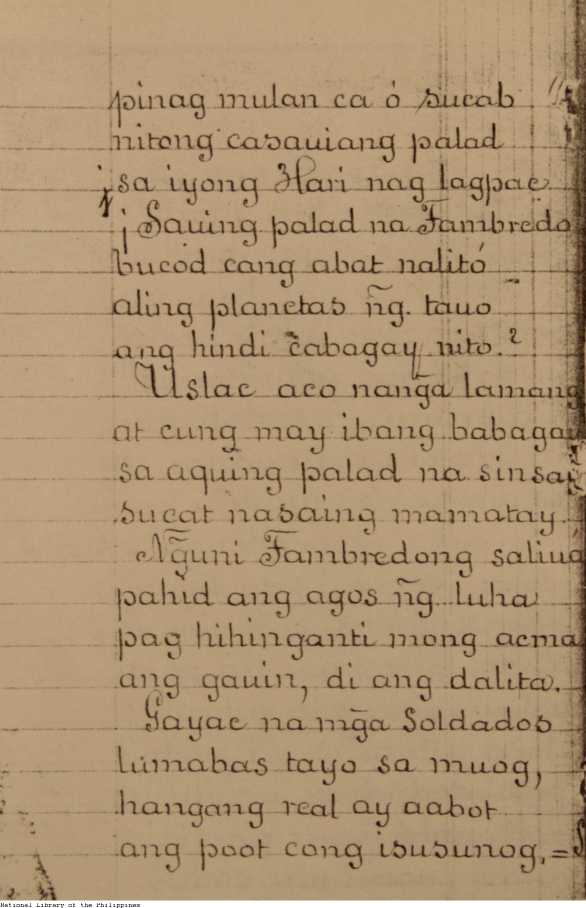 pinag mulan ca ó sucab
nitong casauiang palad
sa iyong Hari nag lagpac
¡ Sauing palad na Fambredo
bucod cang abat nalitó
aling planetas ñg. tauo
ang hindi cabagay nito.?
Uslac aco nanḡa lamang
at cung may ibang babagay
sa aquing palad na sinsay
sucat nasaing mamatay.
Nḡuni Fambredong saliuà
pahid ang agos ñg luha
pag hihinganti mong acma
ang gauin, di ang dalita.
Gayac na mḡa Soldados
lumabas tayo sa muog,
hangang real ay aabot
ang poot cong isusunog. =
National Library of the Philippines